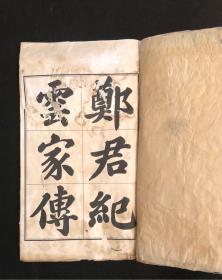 鄭君紀
雲家傳